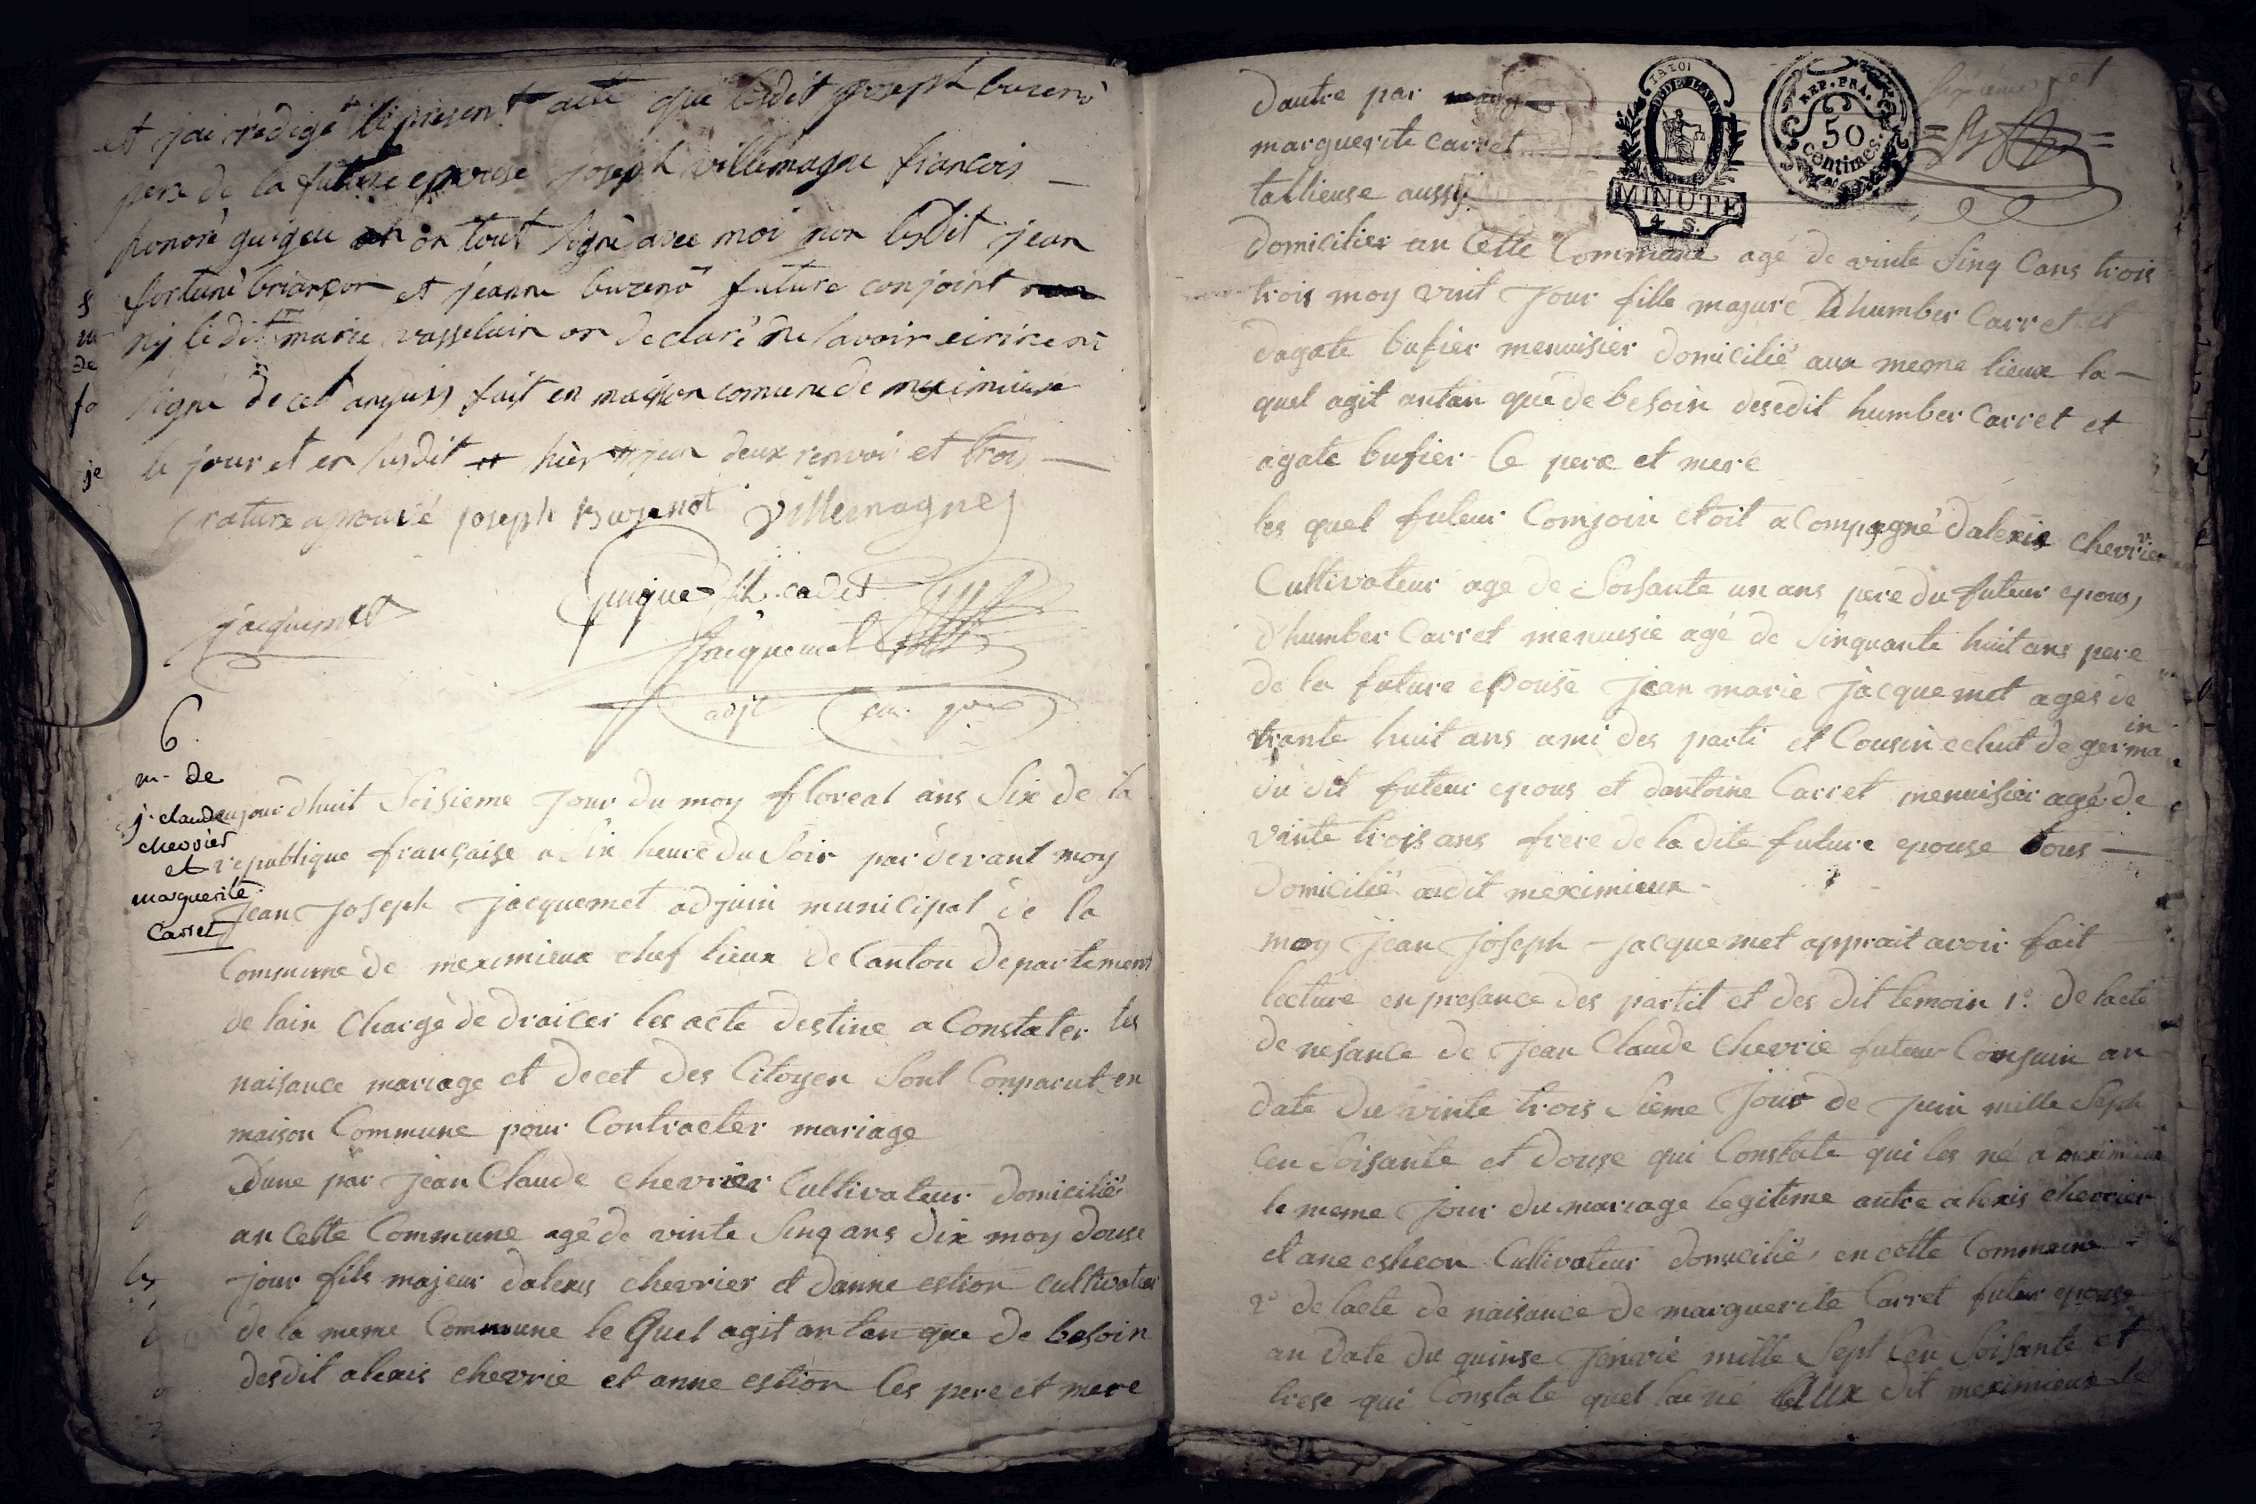 et jai rédigé le present acte que lesdit joseph buzeno
pere de la future epouse joseph villemagne francois
honoré guigue on tout signé avec moi non lesdit jean
fortuné briançon et jeanne buzeno future conjoint
ny ledit marie vasselain on declaré ne savoir eicrire ni
signe de cet anquis fait en maison comune de meximieux
le jour et en susdit deux renvoi et trois
rature aprouvé joseph Buzenot Villemagne
jacquemet
guigue fils cadet
Jacquemet
adjt
6.
m. de
j. claude
chevrier
et
marguerite
Carret
aujourdhuit Soisieme Jour du moy floreal ans Six de la
republique française a Six heure du Soir par devant moy
Jean Joseph Jacquemet adjuin municipal de la
Commune de meximieux chef lieux de Canton departement
de lain Chargé de draicer les acte destine a Constater les
naisance mariage et decet des Citoyen Sont Comparut en
maison Commune pour Contracter mariage
Dune par Jean Claude chevrier Cultivateur domicilié
an cette Commune agé de vinte Sinq ans dix moy douse
jour fils majeur dalexis chevrier et danne estion cultivateur
de la meme Commune le Quel agit an tan que de besoin
desdit alexais chevrie et anne estion les pere et mere
dautre par
marguerite carret
taillieuse aussy
LA LOI
MINUTE
4. S.
REP. FRA.
50
centimes.
domicilier an Cette Commune agé de vinte Sinq ans trois
trois moy vint Jour fille majure D humber Carret et
dagate bufier menuisier domicilié aux meme lieux la-
quel agit antan que de besoin desedit humber Carret et
agate bufier Ce pere et mere
les quel futeur Comjoin etoit acompagné dalexis chevrier
Cultivateur age de Soisante un ans pere du futeur epous,
d'humber Carret menuesie agé de Sinquante huit ans pere
de la future epouse Jean marie Jacquemet ages de
trante huit ans ami des parti et Cousin echut de germain
du dit futeur epous et dantoine Carret menuisier agé de
vainte trois ans frere de la dite future epouse tous
domicilié audit meximieux.
moy Jean Joseph Jacquemet apprait avoir fait
lecture en presance des partit et des dit temoin 1.° de lacte
de nesance de Jean Claude Chevrie futeur Conjuin an
date du vinte trois Sieme Jour de Juin mille Seph
Cen Soisante et douse qui Constate qui les né a meximieux
le meme Jour du mariage legitime antre alexis chevrier
et ane estieon Cultivateur domicilié en cette Commune
2.° de lacte de naisance de marguerite Carret futeur epouse
an date du quinse Jenvié mille Sept Cen Soisante et
trese qui Constate quel lai né aux dit meximieux le